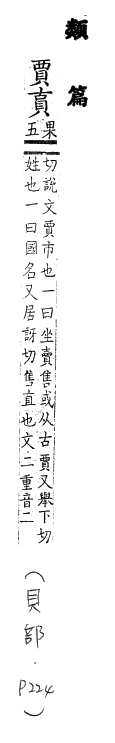 類篇
賈
果五
切說文賈市也一曰坐賣售或从古賈又舉下切
姓也一曰國名又居訝切售直也文二重音二
(貝部.P224)